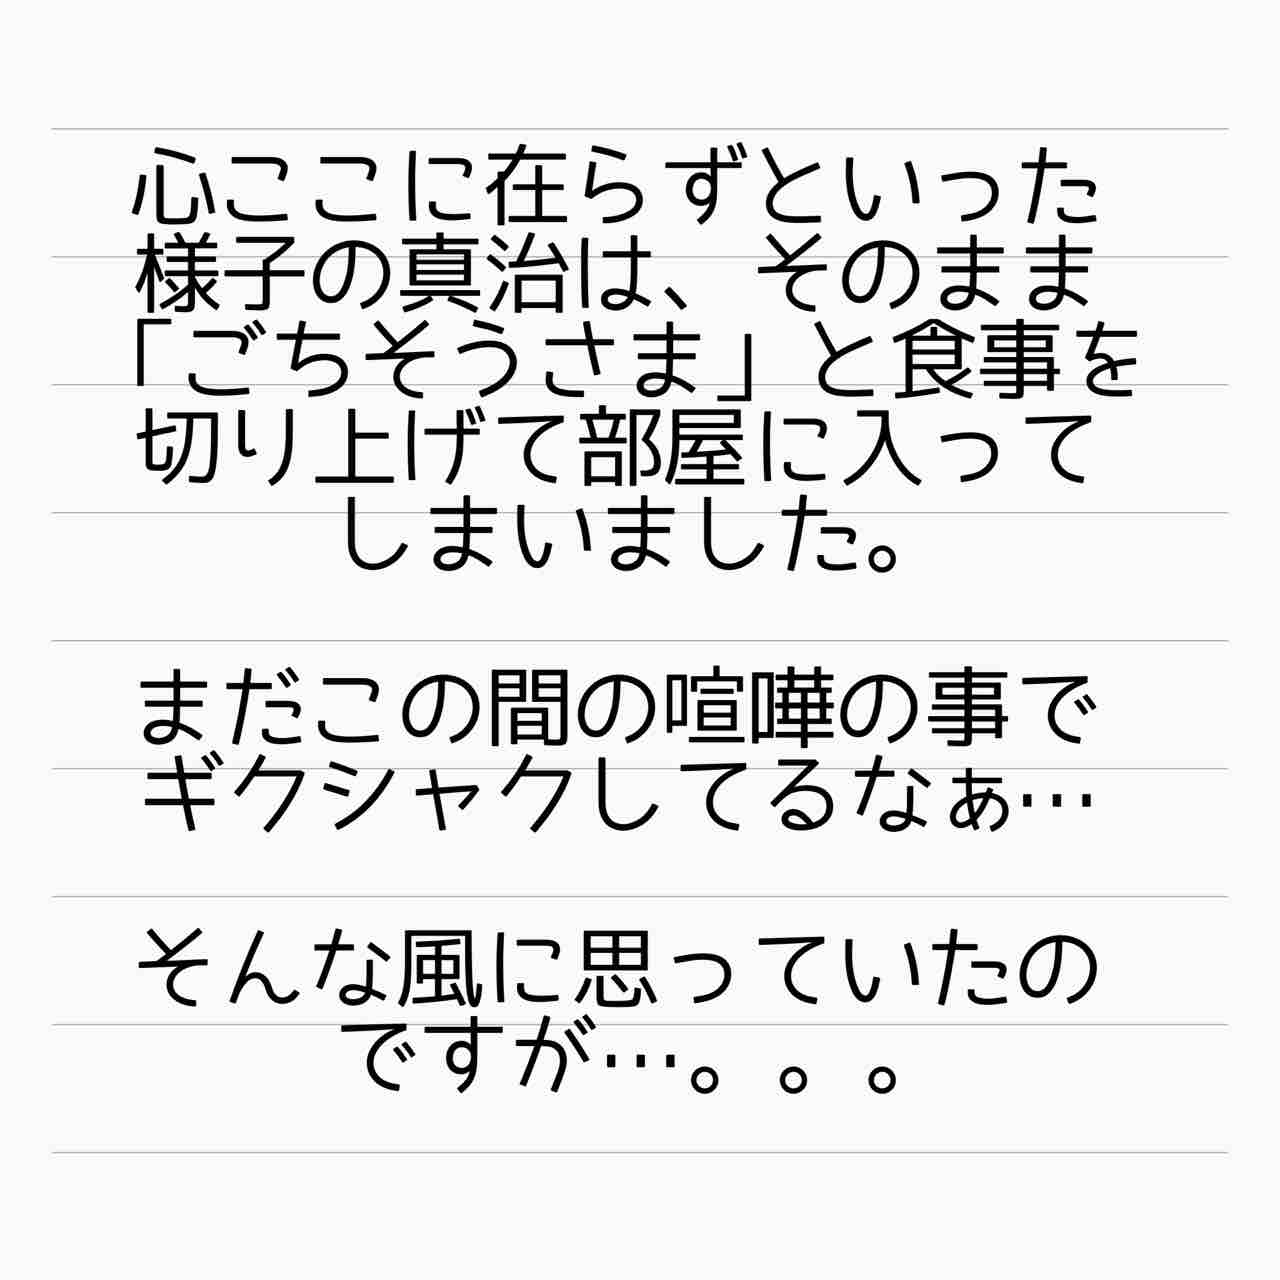 心ここに在らずといった
様子の真治は、そのまま
「ごちそうさま」と食事を
切り上げて部屋に入って
しまいました。
まだこの間の喧嘩の事で
ギクシャクしてるなぁ…
そんな風に思っていたの
ですが…。。。